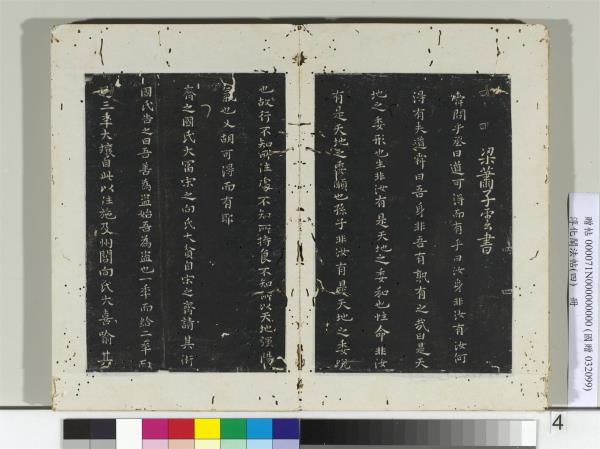 梁蕭子雲書
舜問乎丞曰道可得而有乎曰汝身非汝有汝何
得有夫道舜曰吾身非吾有孰有之哉曰是天
地之委形也生非汝有是天地之委和也性命非汝
有是天地之委順也孫子非汝有是天地之委蛻
也故行不知所往處不知所持食不知所以天地強陽
氣也又胡可得而有耶
齊之國氏大富宋之向氏大貧自宋之齊請其術
國氏告之曰吾善為盜始吾為盜也一年而給二年而
三年大壤自此以往施及州閭向氏大喜喻其
贈帖 000071N000000000 (國贈 032099)
淳化閣法帖(四) 冊
4